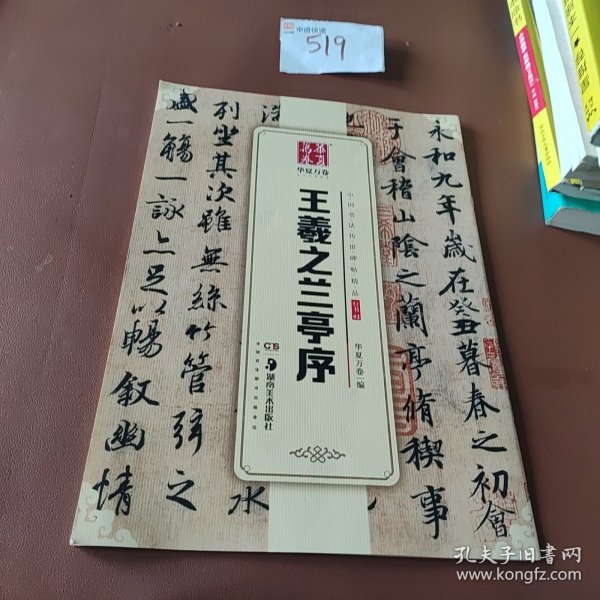 申通快递
519
华夏万卷
华夏万卷
王羲之兰亭序
中国书法传世碑帖精品
行书02
华夏万卷 编
湖南美术出版社
永和九年歲在癸丑暮春之初會
于會稽山陰之蘭亭脩稧事
水
列坐其次雖無絲竹管弦之
盛一觴一詠亦足以暢敘幽情
孔夫子旧书网
www.kongfz.com